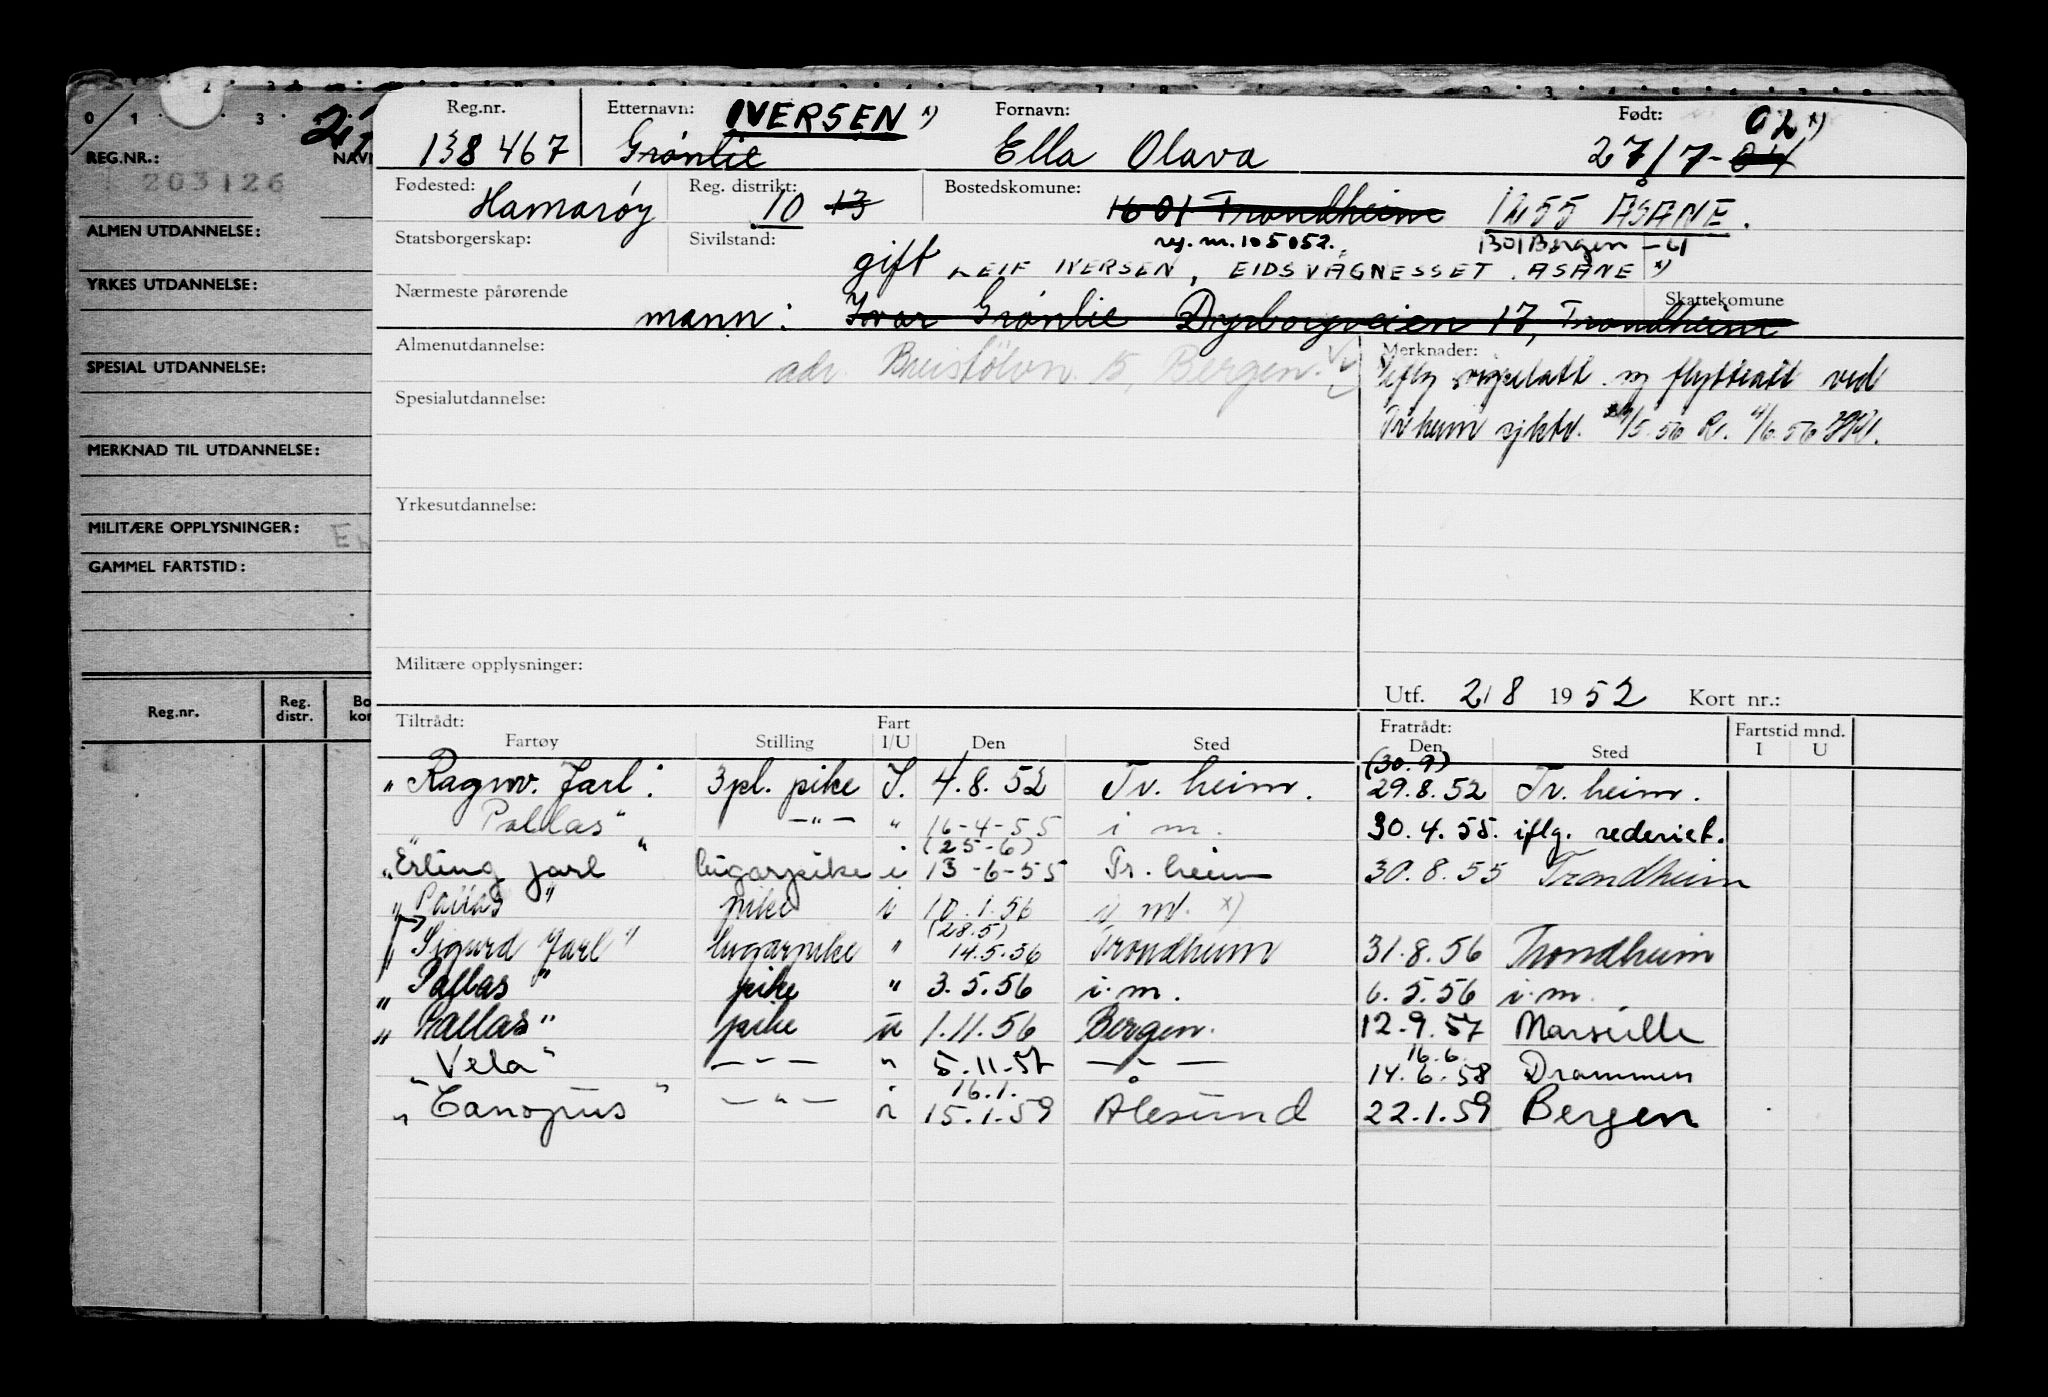 0 1 2 3
REG.NR.: NAV
203126
ALMEN UTDANNELSE:
YRKES UTDANNELSE:
SPESIAL UTDANNELSE:
MERKNAD TIL UTDANNELSE:
MILITÆRE OPPLYSNINGER:
GAMMEL FARTSTID:
Reg.nr. Reg. distr. Bo kor
Reg.nr. Etternavn: IVERSEN x) Fornavn: Født: 02 x)
138467 Grønlie Ella Olava 27/7-04
Fødested: Hamarøy Reg. distrikt: 10 13 Bostedskomune: 1601 Trondheim 1255 ÅSANE.
Statsborgerskap: Sivilstand: gift reg. nr. 105052. 1301 Bergen
LEIF IVERSEN, EIDSVÅGNESSET. ÅSANE x)
Nærmeste pårørende Skattekomune
mann: Ivar Grønlie Dybborgveien 17, Trondheim
Almenutdannelse: adr. Breistølvn. 15, Bergen. Merknader:
iflg flyttatt ved
Spesialutdannelse: Tr heim sjktr. /5.56 4/6.56
Yrkesutdannelse:
Militære opplysninger:
Utf. 2/8 1952 Kort nr.:
Tiltrådt: Fart Fratrådt: Fartstid mnd.
Fartøy Stilling I/U Den Sted Den Sted I U
(30.9)
"Ragnv. Jarl" 3pl. pike I. 4.8.52 Tr. heim. 29.8.52 Tr. heim.
Pallas" —"— " 16-4-55 i m. 30.4.55. iflg. rederiet.
(25-6)
"Erling Jarl" lugarpike i 13-6-55 Tr. heim 30.8.55 Trondheim
"Pallas" pike i 10.1.56 i m. x)
(28.5)
"Sigurd Jarl" lugarpike " 14.5.56 Trondheim 31.8.56 Trondheim
"Pallas" pike " 3.5.56 i.m. 6.5.56 i.m.
"Pallas" pike u 1.11.56 Bergen. 12.9.57 Marseille
16.6.
"Vela" —"— " 5.11.57 —"— 14.6.58 Drammen
16.1.
"Canopus" —"— i 15.1.59 Ålesund 22.1.59 Bergen